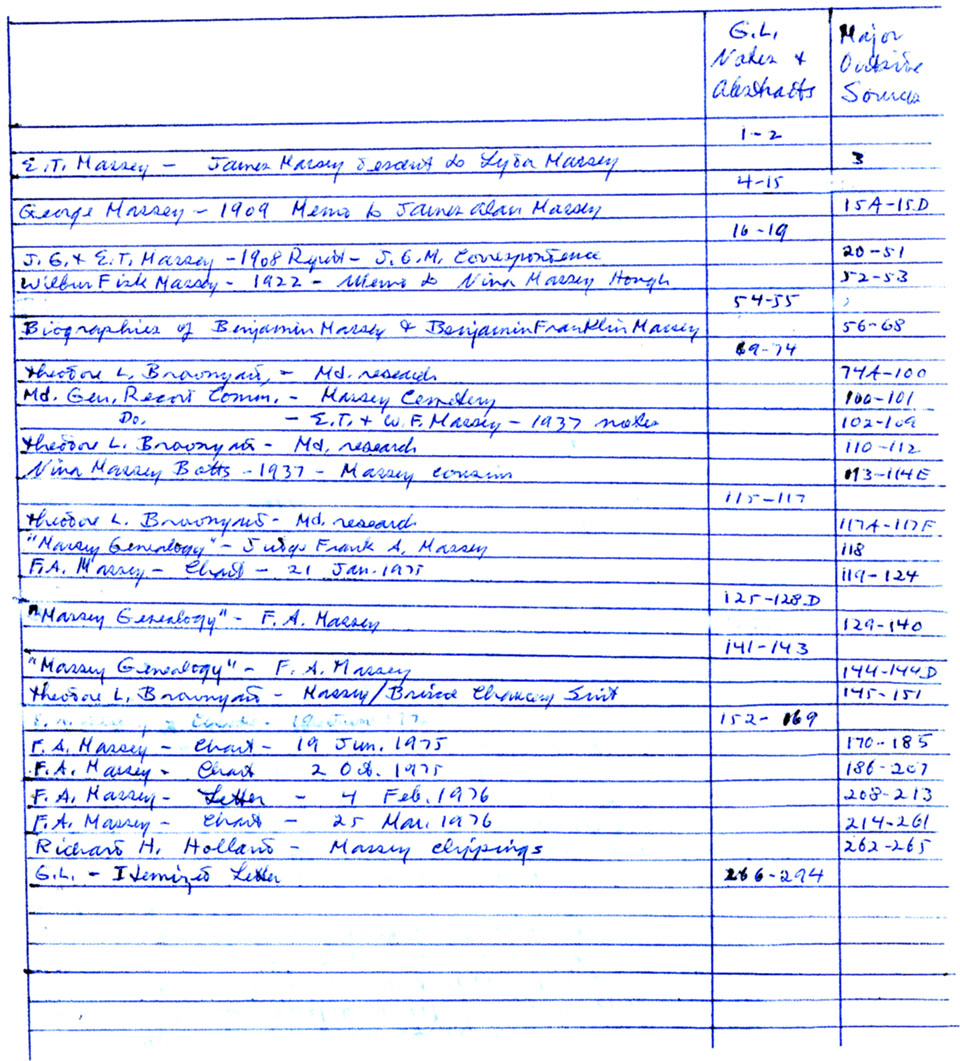 G.L. Notes & Abstracts
Major Outside Sources
1-2
E.T. Massey - James Massey descent to Lyda Massey 3
4-15
George Massey - 1909 Memo to James Alan Massey 15A-15D
16-19
J.G. & E.T. Massey - 1908 Report - J.G.M. Correspondence 20-51
Wilbur Fisk Massey - 1922 - Memo to Nina Massey Hough 52-53
54-55
Biographies of Benjamin Massey & Benjamin Franklin Massey 56-68
69-74
Theodore L. Bravnyard, - Md. research 74A-100
Md. Gen. Record Comm. - Massey Cemetery 100-101
Do. - E.T. & W.F. Massey - 1937 notes 102-109
Theodore L. - Md. research 110-112
Nina Massey Botts - 1937 - Massey cousins 113-114E
115-117
Theodore L. - Md. research 117A-117F
"Massey Genealogy" - Judge Frank A. Massey 118
F.A. Massey - Chart - 21 Jan. 1975 119-124
125-128D
"Massey Genealogy" - F.A. Massey 129-140
141-143
"Massey Genealogy" - F.A. Massey 144-144D
Theodore L. - Massey/Briscoe Chancery Suit 145-151
152-169
F.A. Massey - Chart - 19 Jun. 1975 170-185
F.A. Massey - Chart 2 Oct. 1975 186-207
F.A. Massey - Letter - 4 Feb. 1976 208-213
F.A. Massey - Chart - 25 Mar. 1976 214-261
Richard H. Holland - Massey clippings 262-265
G.L. - Itemized Letter 266-294